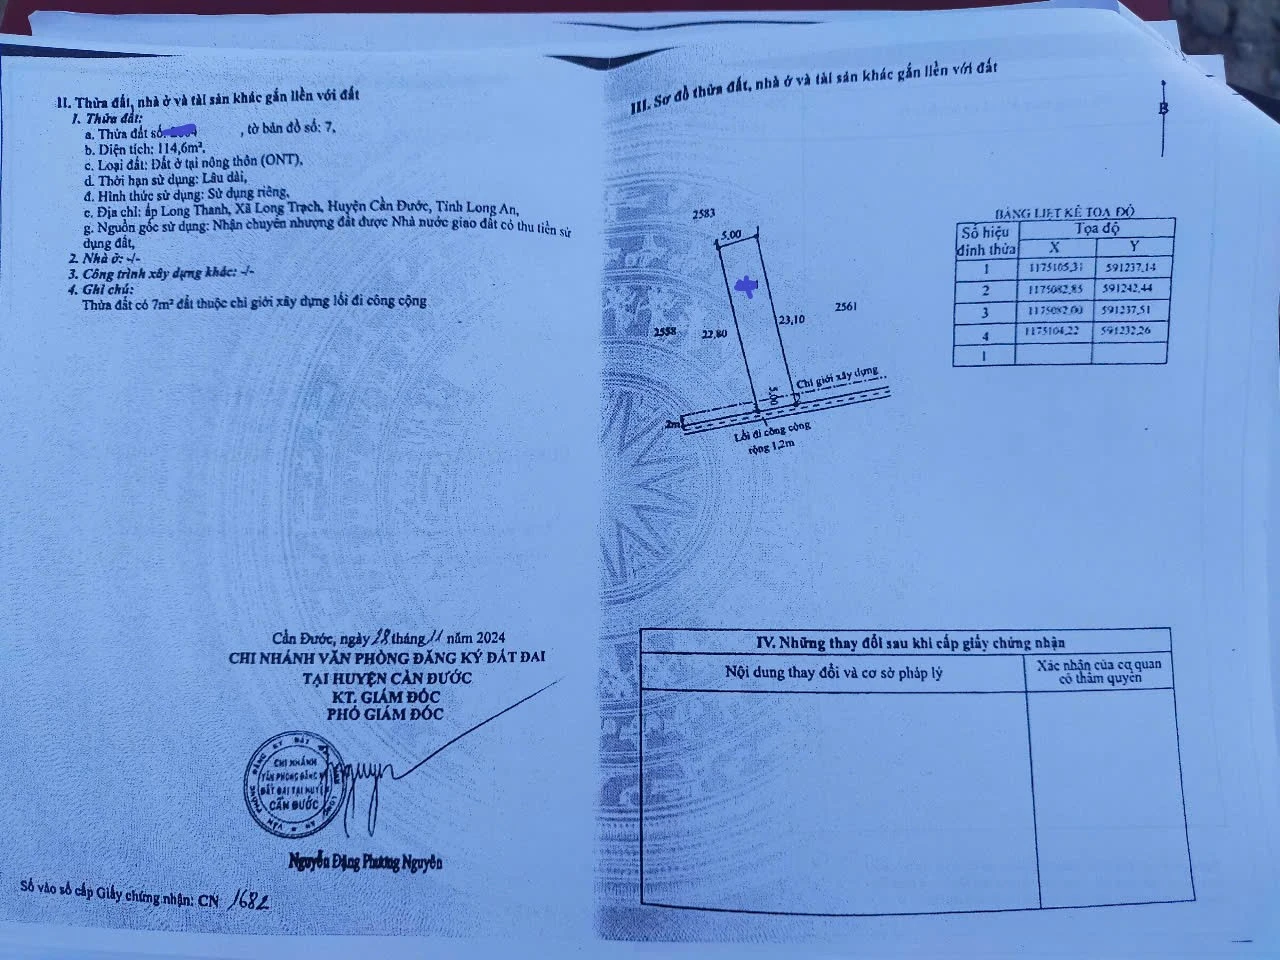 II. Thửa đất, nhà ở và tài sản khác gắn liền với đất
1. Thửa đất:
a. Thửa đất số: , tờ bản đồ số: 7,
b. Diện tích: 114,6m²,
c. Loại đất: Đất ở tại nông thôn (ONT),
d. Thời hạn sử dụng: Lâu dài,
đ. Hình thức sử dụng: Sử dụng riêng,
e. Địa chỉ: ấp Long Thanh, Xã Long Trạch, Huyện Cần Đước, Tỉnh Long An,
g. Nguồn gốc sử dụng: Nhận chuyển nhượng đất được Nhà nước giao đất có thu tiền sử
dụng đất,
2. Nhà ở: -/-
3. Công trình xây dựng khác: -/-
4. Ghi chú:
Thửa đất có 7m² đất thuộc chỉ giới xây dựng lối đi công cộng
Cần Đước, ngày 28 tháng 11 năm 2024
CHI NHÁNH VĂN PHÒNG ĐĂNG KÝ ĐẤT ĐAI
TẠI HUYỆN CẦN ĐƯỚC
KT. GIÁM ĐỐC
PHÓ GIÁM ĐỐC
CHI NHÁNH
VĂN PHÒNG ĐĂNG KÝ
ĐẤT ĐAI TẠI HUYỆN
CẦN ĐƯỚC
Nguyễn Đặng Phương Nguyên
Số vào sổ cấp Giấy chứng nhận: CN 1682
III. Sơ đồ thửa đất, nhà ở và tài sản khác gắn liền với đất
B
2583
5,00
2558
22,80
23,10
2561
5,00
Chỉ giới xây dựng
2m
Lối đi công cộng
rộng 1,2m
BẢNG LIỆT KÊ TỌA ĐỘ
Số hiệu đỉnh thửa Tọa độ
X Y
1 1175105,31 591237,14
2 1175082,85 591242,44
3 1175082,00 591237,51
4 1175104,22 591232,26
1
IV. Những thay đổi sau khi cấp giấy chứng nhận
Nội dung thay đổi và cơ sở pháp lý
Xác nhận của cơ quan
có thẩm quyền